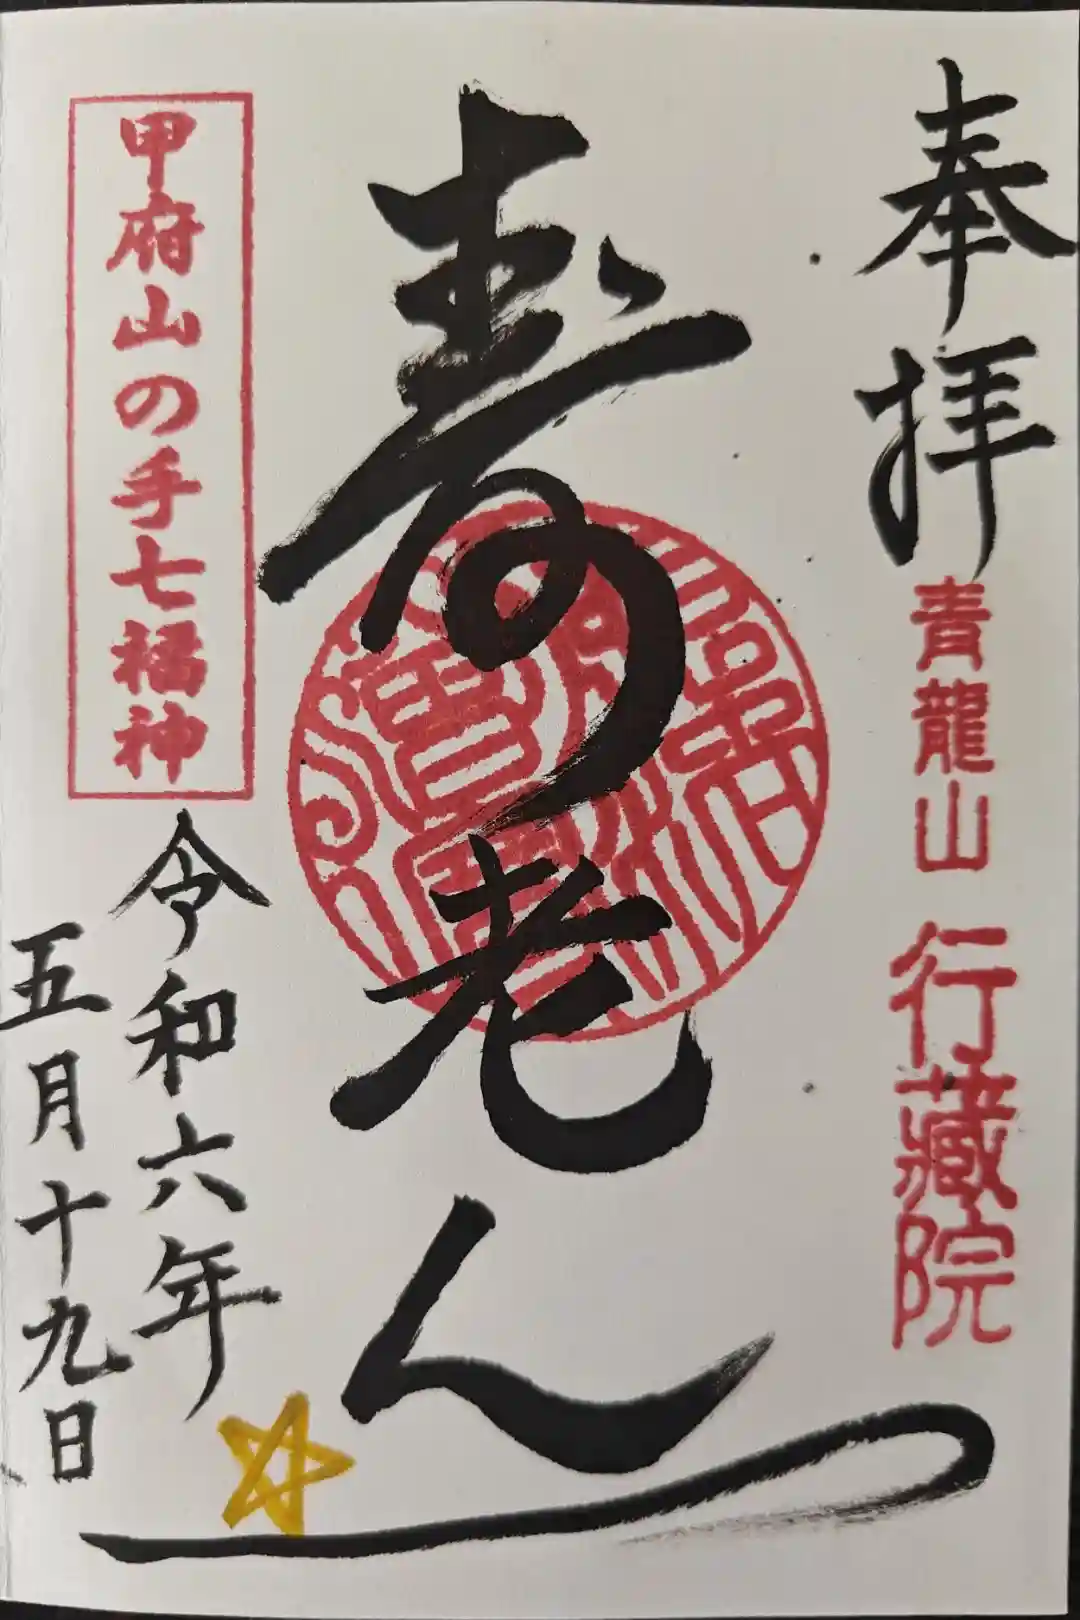 奉拝
青龍山 行藏院
寿老人
甲府山の手七福神
令和六年
五月十九日